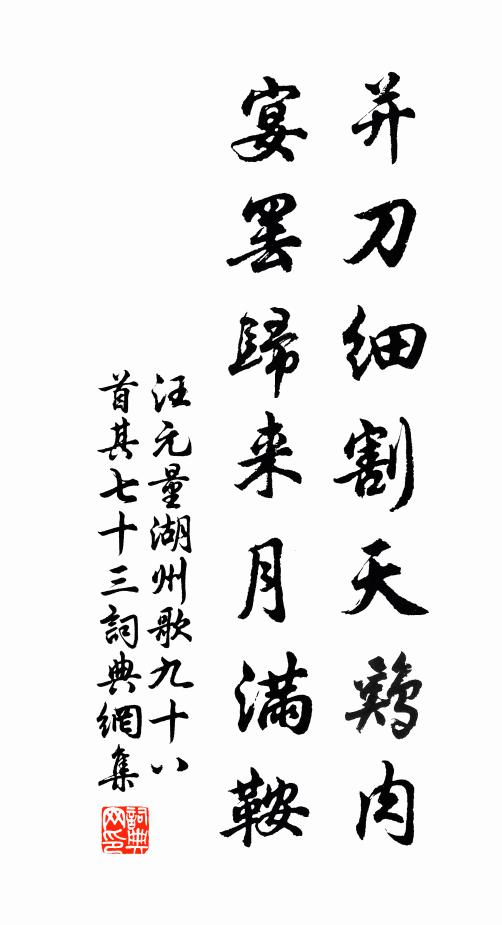 并刀细割天鷄肉
宴罷歸来月满鞍
汪元量湖州歌九十八
首其七十三詞典網集
詞典网印